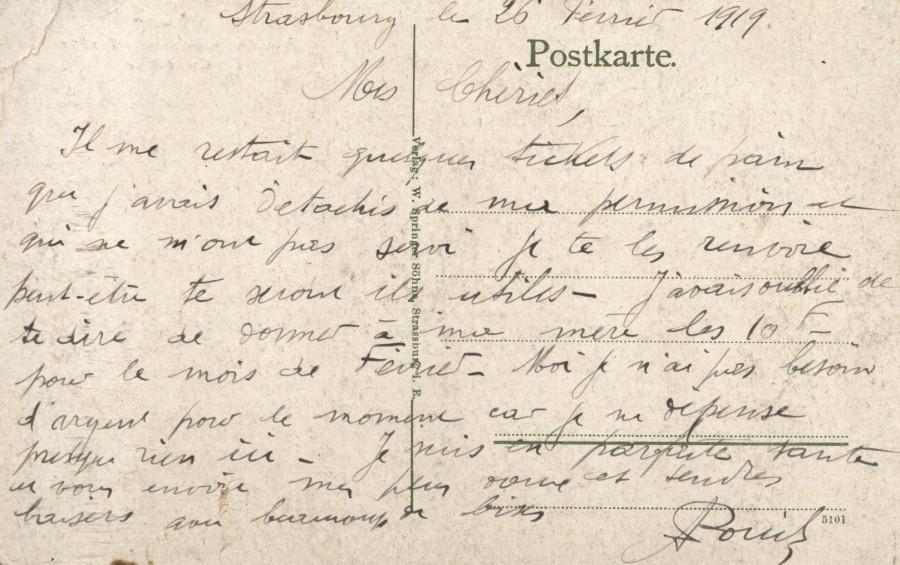 Strasbourg le 26 Février 1919.
Postkarte.
Mes Chéries,
Il me restait quelques tickets de pain
que j'avais détachés de ma permission et
qui ne m'ont pas servi je te les renvoie
peut-être te seront ils utiles – J'avais oublié de
te dire de donner à ma mère les 10 F –
pour le mois de Février – Moi je n'ai pas besoin
d'argent pour le moment car je ne dépense
presque rien ici – Je suis en parfaite santé
et vous envoie mes plus doux et tendres
baisers avec beaucoup de bises
Verlag: W. Springer Söhne, Strassburg i. E.
5101